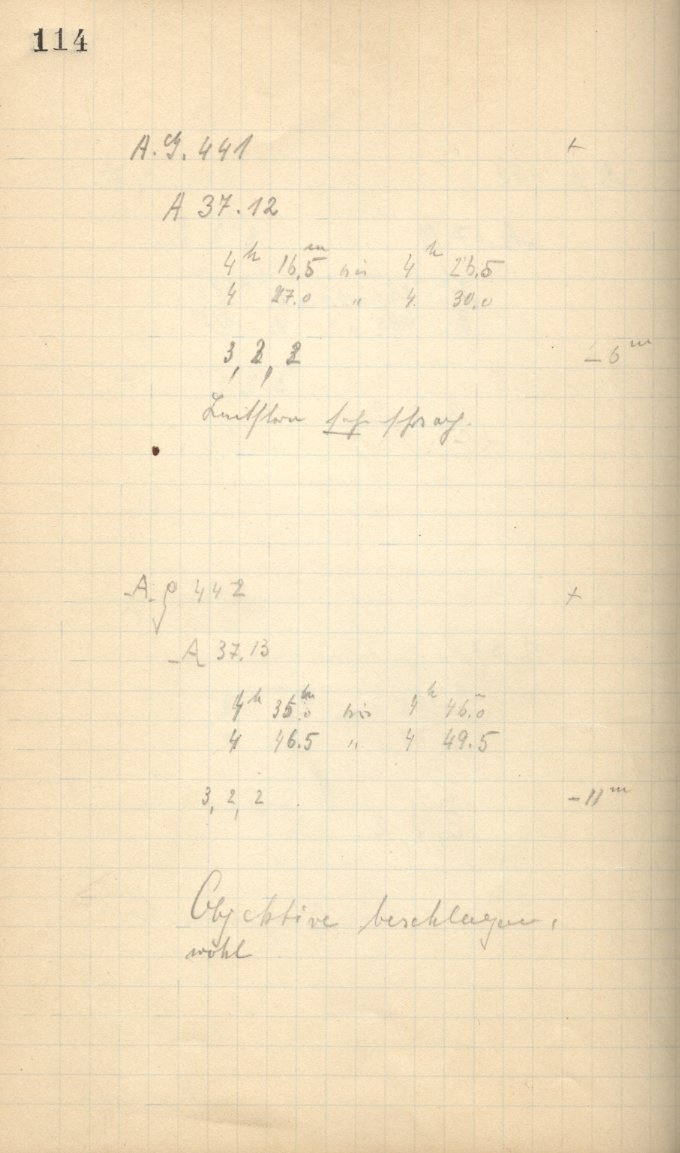 114
A. G. 441 +
A 37.12
4h 16,5m bis 4h 26,5
4 27.0 " 4 30.0
3, 2, 2 – 6m
Leitstern sehr schwach.
A. G 442 +
A 37.13
4h 35.0m bis 4h 46.0m
4 46.5 " 4 49.5
3, 2, 2 – 11m
Objektive beschlagen,
wohl